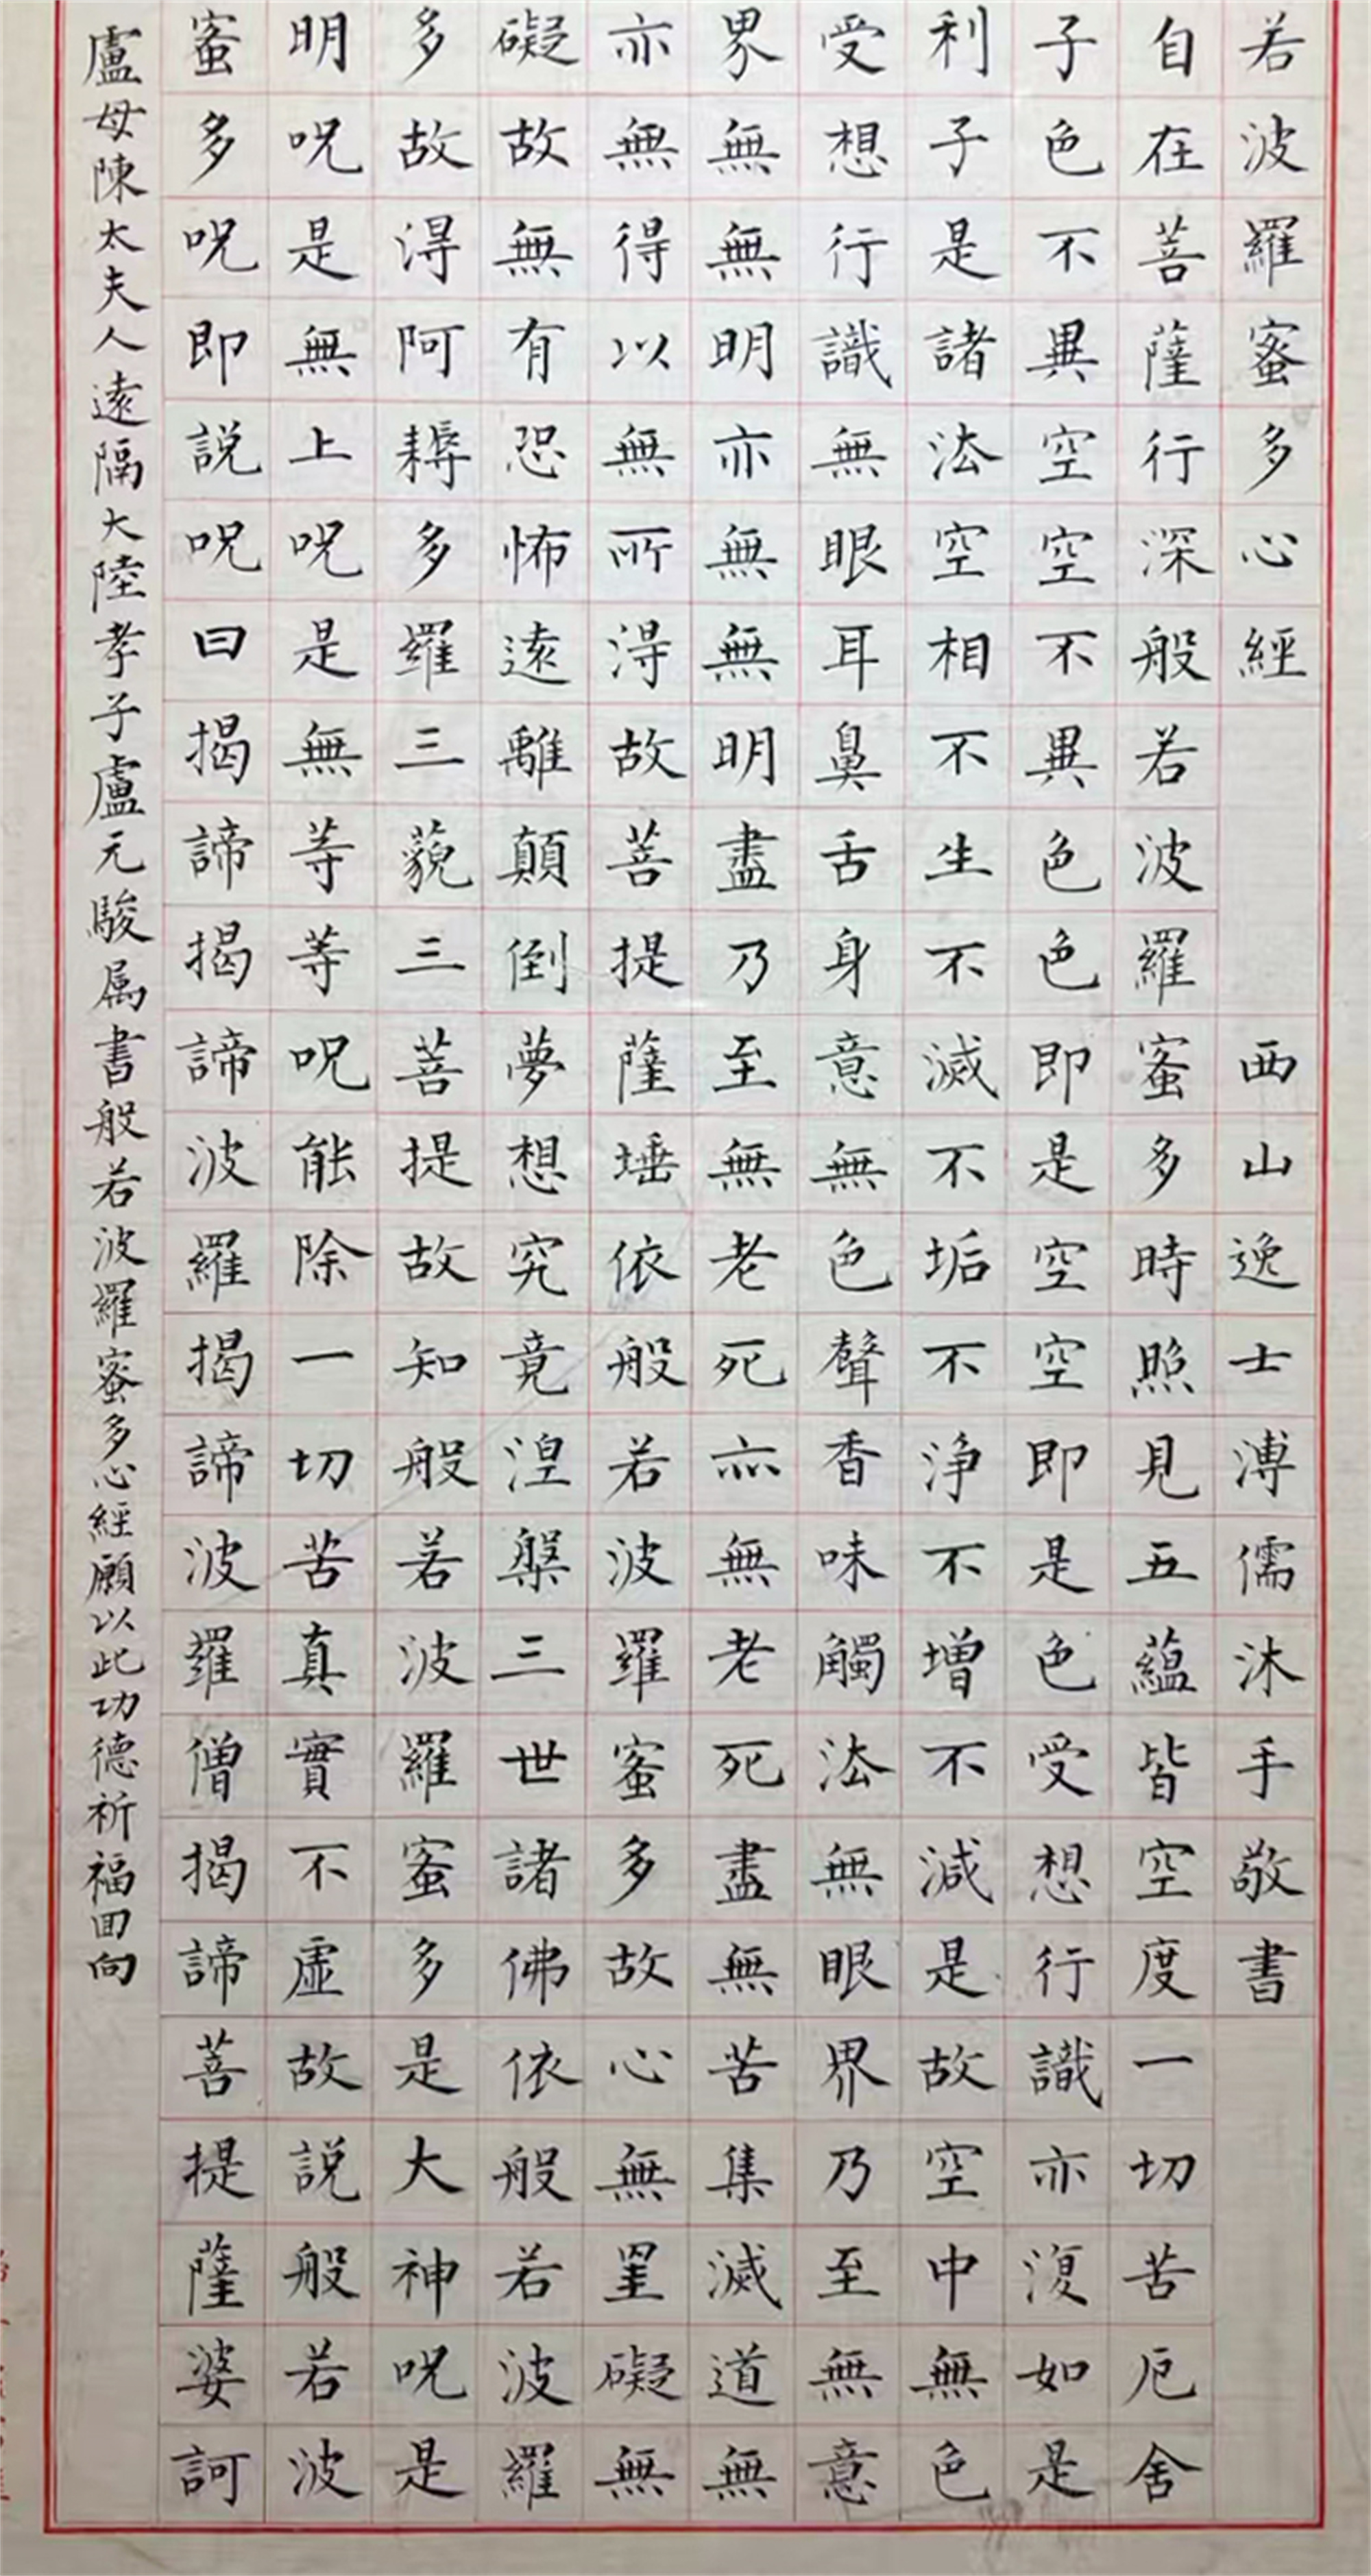 若波羅蜜多心經 西山逸士溥儒沐手敬書
自在菩薩行深般若波羅蜜多時照見五蘊皆空度一切苦厄舍
子色不異空空不異色色即是空空即是色受想行識亦復如是
利子是諸法空相不生不滅不垢不淨不增不減是故空中無色
受想行識無眼耳鼻舌身意無色聲香味觸法無眼界乃至無意
界無無明亦無無明盡乃至無老死亦無老死盡無苦集滅道無
亦無得以無所得故菩提薩埵依般若波羅蜜多故心無罣礙無
礙故無有恐怖遠離顛倒夢想究竟涅槃三世諸佛依般若波羅
多故得阿耨多羅三藐三菩提故知般若波羅蜜多是大神呪是
明呪是無上呪是無等等呪能除一切苦真實不虛故說般若波
蜜多呪即說呪曰揭諦揭諦波羅揭諦波羅僧揭諦菩提薩婆訶
盧母陳太夫人遠隔大陸孝子盧元駿属書般若波羅蜜多心經願以此功德祈福回向